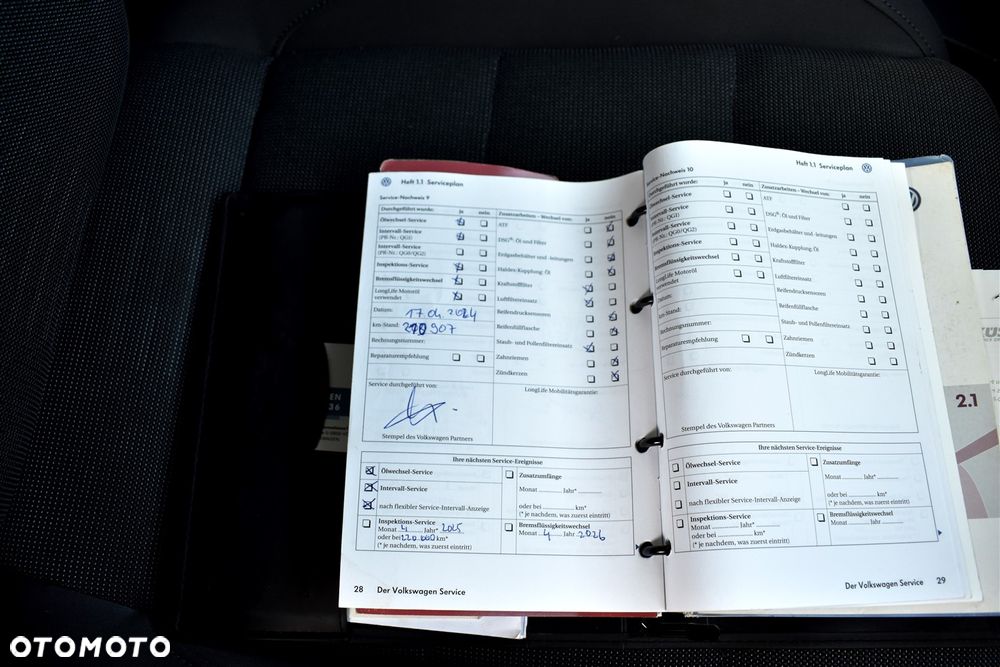 Heft 1.1 Serviceplan
Service-Nachweis 9
Durchgeführt wurde: ja nein
Ölwechsel-Service
Intervall-Service
(PR-Nr.: QG1)
Intervall-Service
(PR-Nr.: QG0/QG2)
Inspektions-Service
Bremsflüssigkeitswechsel
LongLife Motoröl
verwendet
Datum: 17.04.2024
km-Stand: 210907
Rechnungsnummer:
Reparaturempfehlung
Zusatzarbeiten - Wechsel von: ja nein
ATF
DSG®: Öl und Filter
Erdgasbehälter und -leitungen
Haldex-Kupplung: Öl
Kraftstofffilter
Luftfiltereinsatz
Reifendrucksensoren
Reifenfüllflasche
Staub- und Pollenfiltereinsatz
Zahnriemen
Zündkerzen
Service durchgeführt von:
LongLife Mobilitätsgarantie:
Stempel des Volkswagen Partners
Ihre nächsten Service-Ereignisse
Ölwechsel-Service
Intervall-Service
nach flexibler Service-Intervall-Anzeige
Inspektions-Service
Monat 4 Jahr* 2025
oder bei 220.000 km*
(* je nachdem, was zuerst eintritt)
Zusatzumfänge
Monat Jahr*
oder bei km*
(* je nachdem, was zuerst eintritt)
Bremsflüssigkeitswechsel
Monat 4 Jahr 2026
28 Der Volkswagen Service
Heft 1.1 Serviceplan
Service-Nachweis 10
Durchgeführt wurde: ja nein
Ölwechsel-Service
Intervall-Service
(PR-Nr.: QG1)
Intervall-Service
(PR-Nr.: QG0/QG2)
Inspektions-Service
Bremsflüssigkeitswechsel
LongLife Motoröl
verwendet
Datum:
km-Stand:
Rechnungsnummer:
Reparaturempfehlung
Zusatzarbeiten - Wechsel von: ja nein
ATF
DSG®: Öl und Filter
Erdgasbehälter und -leitungen
Haldex-Kupplung: Öl
Kraftstofffilter
Luftfiltereinsatz
Reifendrucksensoren
Reifenfüllflasche
Staub- und Pollenfiltereinsatz
Zahnriemen
Zündkerzen
Service durchgeführt von:
LongLife Mobilitätsgarantie:
Stempel des Volkswagen Partners
Ihre nächsten Service-Ereignisse
Ölwechsel-Service
Intervall-Service
nach flexibler Service-Intervall-Anzeige
Inspektions-Service
Monat Jahr*
oder bei km*
(* je nachdem, was zuerst eintritt)
Zusatzumfänge
Monat Jahr*
oder bei km*
(* je nachdem, was zuerst eintritt)
Bremsflüssigkeitswechsel
Monat Jahr
Der Volkswagen Service 29
2.1
OTOMOTO